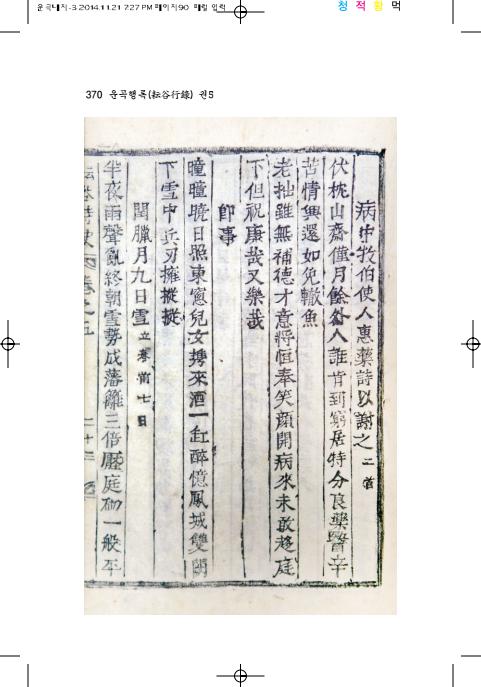 운곡내지-3 2014.11.21 7:27 PM 페이지90 매릴 입력
청 적 황 먹
370 운곡행록(耘谷行錄) 권5
病中牧伯使人惠藥詩以謝之 二首
伏枕山齋僅月餘咎人誰肯到窮居特分良藥醫辛
苦情興還如免轍魚
老拙雖無補德才意將恒奉笑顔開病來未敢趍庭
下但祝康哉又樂哉
卽事
曈曈曉日照東窓兒女携來酒一缸醉憶鳳城雙闕
下雪中兵刃擁摐摐
閏臘月九日雪 立春前七日
半夜雨聲亂終朝雪勢成藩籬三倍壓庭砌一般平
耘谷詩史 卷之五 二十三